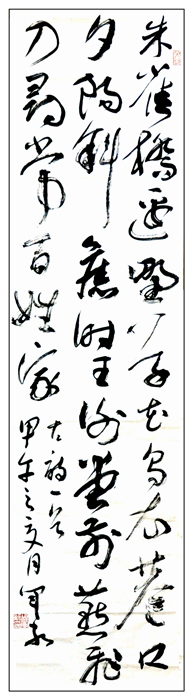 朱雀橋邊野草花烏衣巷口
夕陽斜舊時王謝堂前燕飛
入尋常百姓家
古詩一首
甲午之夏月